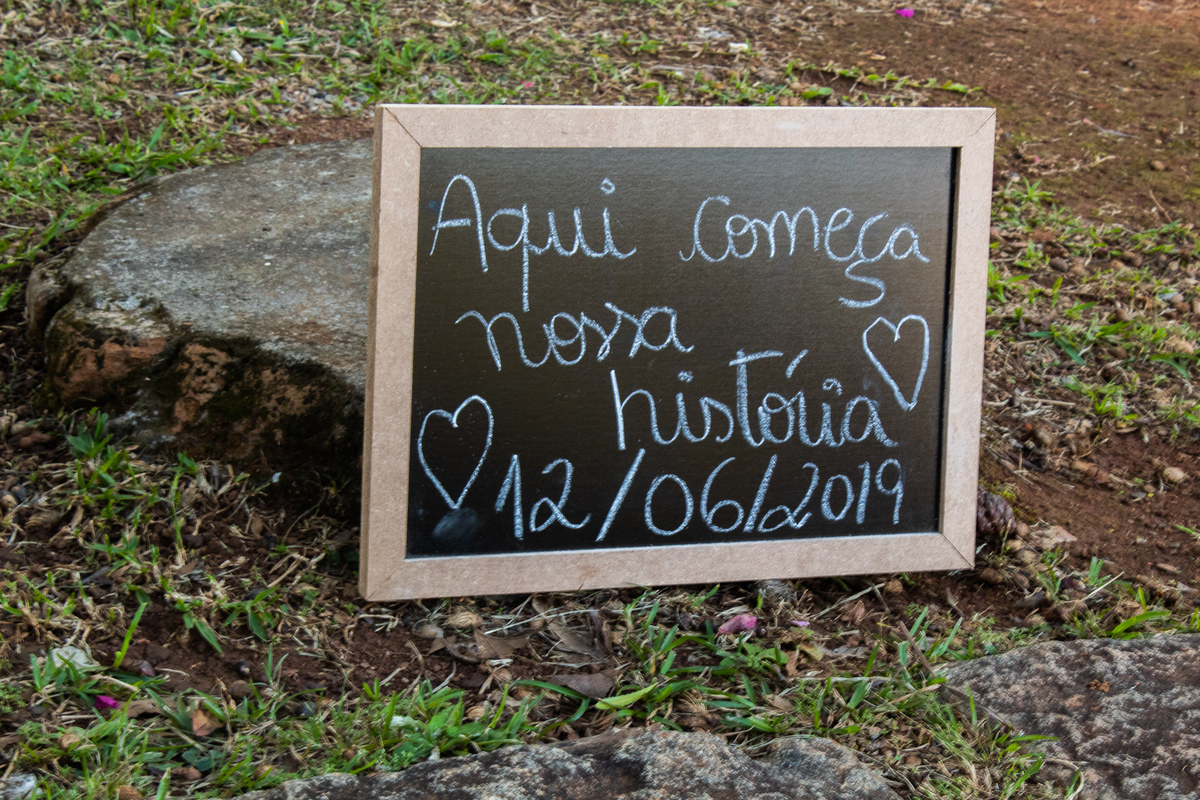 Aqui começa
nossa
história
12/06/2019